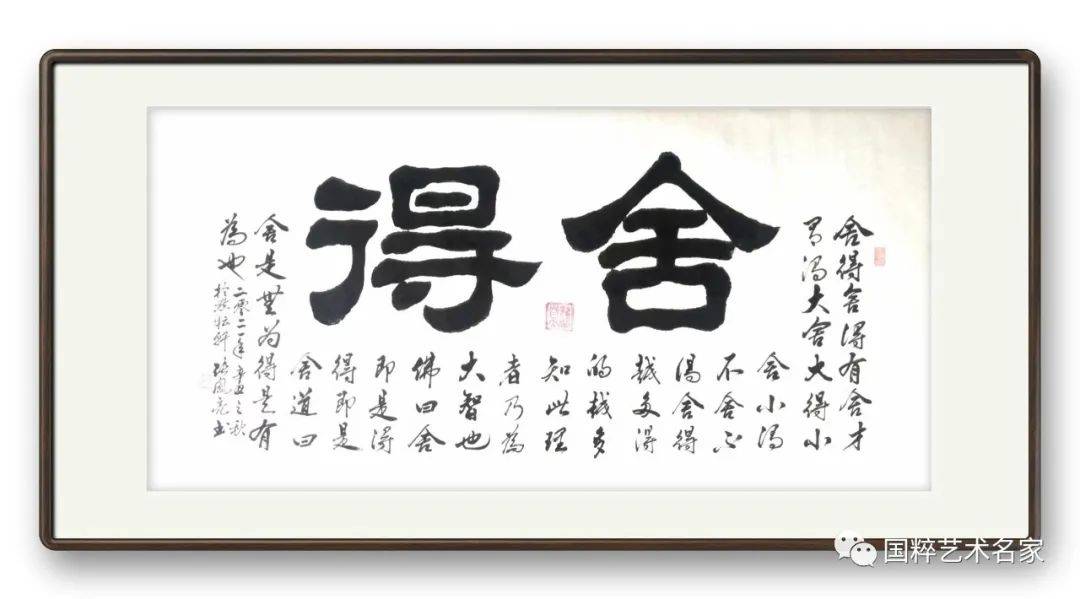 舍得
舍得舍得有舍才
有得大舍大得小
舍小得
不舍不
得舍得
越多得
的越多
知此理
者乃為
大智也
佛曰舍
即是得
得即是
舍道曰
舍是無为得是有
為也 二零二一年辛丑之秋
书
国粹艺术名家